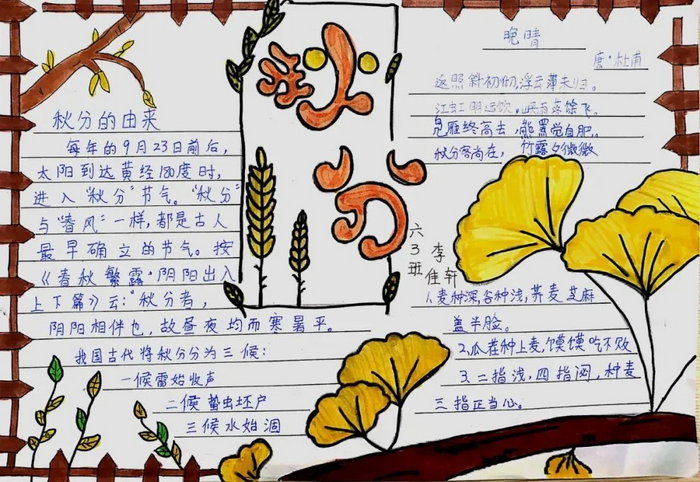 秋分
秋分的由来
每年的9月23日前后，
太阳到达黄经180度时，
进入“秋分”节气。“秋分”
与“春风”一样，都是古人
最早确立的节气。按
《春秋繁露·阴阳出入
上下篇》云：“秋分者，
阴阳相伴也，故昼夜均而寒暑平。
我国古代将秋分分为三候：
一候雷始收声
二候蛰虫坯户
三候水始涸
晚晴
唐·杜甫
返照斜初彻，浮云薄未归。
江虹明远饮，峡雨落馀飞。
凫雁终高去，熊罴觉自肥。
秋分客尚在，竹露夕微微
六3班
李佳轩
1、麦种深，谷种浅，荞麦芝麻
盖半脸。
2、瓜茬种上麦，馍馍吃不败
3、二指浅，四指深，种麦
三指正当心。